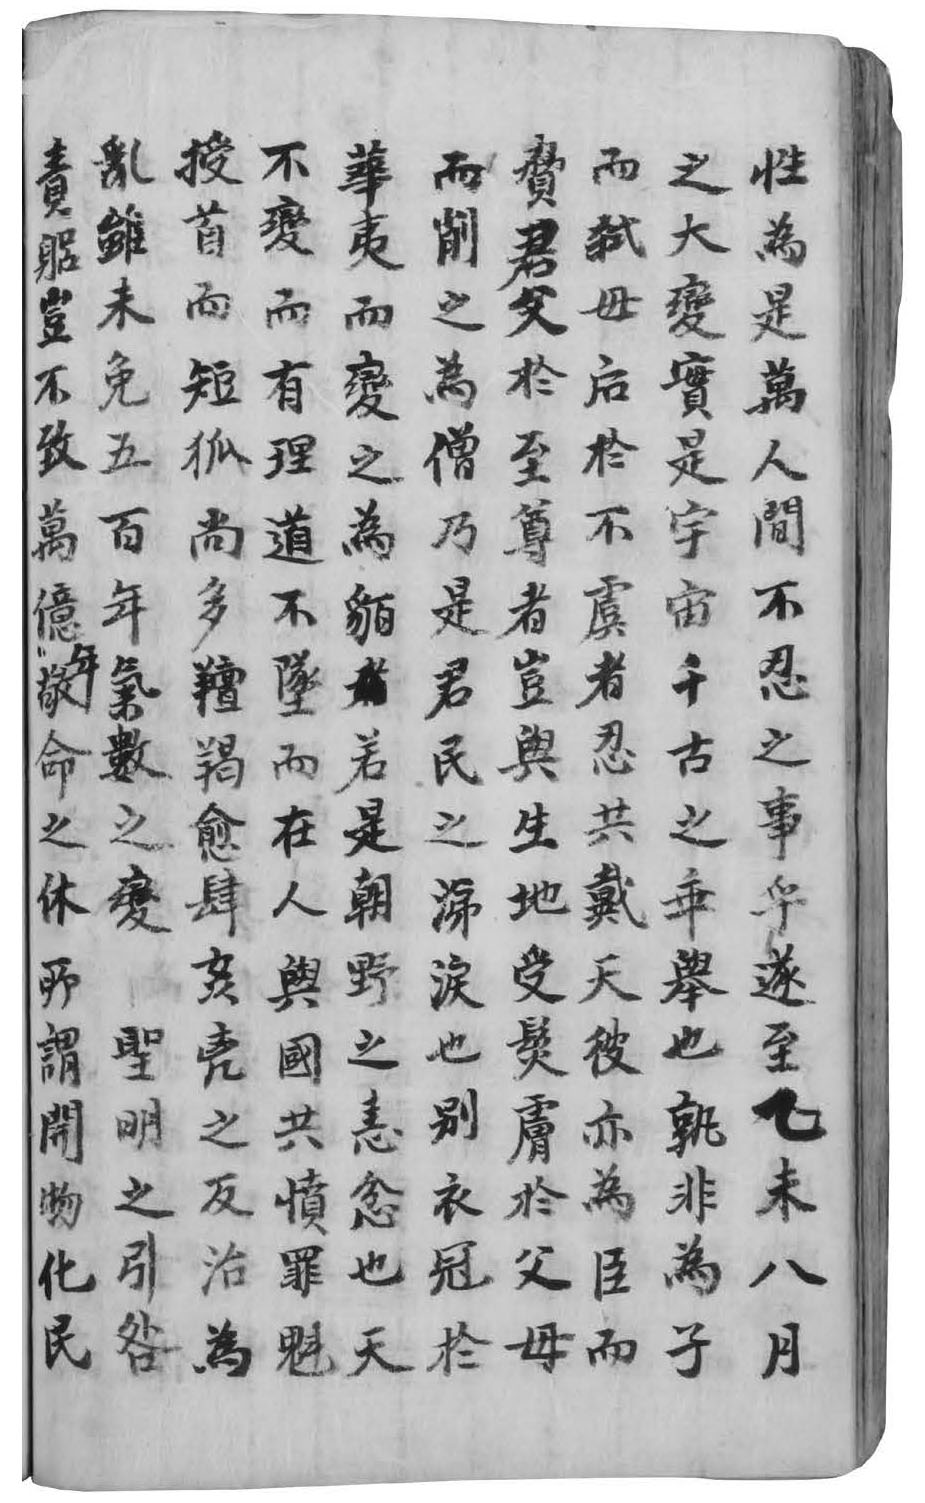 性為是萬人間不忍之事乎遂至乙未八月
之大變實是宇宙千古之乖舉也孰非為子
而弑母后於不虞者忍共戴天彼亦為臣而
賚君父於至尊者豈與生地受髮膚於父母
而削之為僧乃是君民之涕淚也別衣冠於
華夷而變之為貊者若是朝野之恚忿也天
不變而有理道不墜而在人與國共憤罪魁
授首而短狐尚多羶羯愈肆亥亮之反治為
亂雖未免五百年氣數之變 聖明之引咎
責躬豈不致萬億年敬命之休所謂開物化民